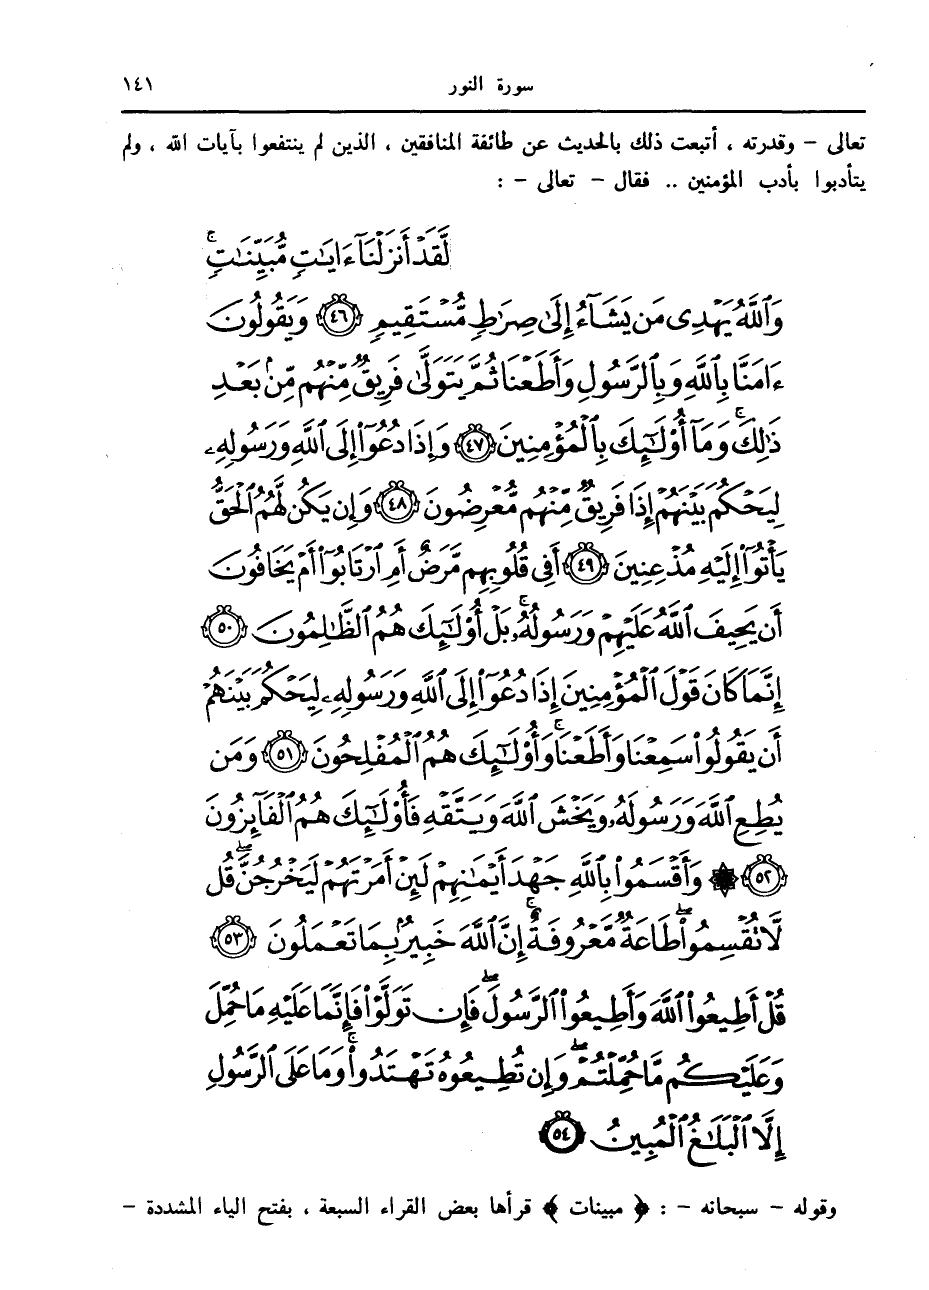 سورة النور
١٤١
تعالى – وقدرته ، أتبعت ذلك بالحديث عن طائفة المنافقين ، الذين لم ينتفعوا بآيات الله ، ولم
يتأدبوا بأدب المؤمنين .. فقال – تعالى – :
لَّقَدْ أَنزَلْنَآ ءَايَٰتٍ مُّبَيِّنَٰتٍ ۚ
وَٱللَّهُ يَهْدِى مَن يَشَآءُ إِلَىٰ صِرَٰطٍ مُّسْتَقِيمٍ ٤٦ وَيَقُولُونَ
ءَامَنَّا بِٱللَّهِ وَبِٱلرَّسُولِ وَأَطَعْنَا ثُمَّ يَتَوَلَّىٰ فَرِيقٌ مِّنْهُم مِّنۢ بَعْدِ
ذَٰلِكَ ۚ وَمَآ أُو۟لَٰٓئِكَ بِٱلْمُؤْمِنِينَ ٤٧ وَإِذَا دُعُوٓا۟ إِلَى ٱللَّهِ وَرَسُولِهِۦ
لِيَحْكُمَ بَيْنَهُمْ إِذَا فَرِيقٌ مِّنْهُم مُّعْرِضُونَ ٤٨ وَإِن يَكُن لَّهُمُ ٱلْحَقُّ
يَأْتُوٓا۟ إِلَيْهِ مُذْعِنِينَ ٤٩ أَفِى قُلُوبِهِم مَّرَضٌ أَمِ ٱرْتَابُوٓا۟ أَمْ يَخَافُونَ
أَن يَحِيفَ ٱللَّهُ عَلَيْهِمْ وَرَسُولُهُۥ ۚ بَلْ أُو۟لَٰٓئِكَ هُمُ ٱلظَّٰلِمُونَ ٥٠
إِنَّمَا كَانَ قَوْلَ ٱلْمُؤْمِنِينَ إِذَا دُعُوٓا۟ إِلَى ٱللَّهِ وَرَسُولِهِۦ لِيَحْكُمَ بَيْنَهُمْ
أَن يَقُولُوا۟ سَمِعْنَا وَأَطَعْنَا ۚ وَأُو۟لَٰٓئِكَ هُمُ ٱلْمُفْلِحُونَ ٥١ وَمَن
يُطِعِ ٱللَّهَ وَرَسُولَهُۥ وَيَخْشَ ٱللَّهَ وَيَتَّقْهِ فَأُو۟لَٰٓئِكَ هُمُ ٱلْفَآئِزُونَ
٥٢ ۞ وَأَقْسَمُوا۟ بِٱللَّهِ جَهْدَ أَيْمَٰنِهِمْ لَئِنْ أَمَرْتَهُمْ لَيَخْرُجُنَّ ۖ قُل
لَّا تُقْسِمُوا۟ ۖ طَاعَةٌ مَّعْرُوفَةٌ ۚ إِنَّ ٱللَّهَ خَبِيرٌۢ بِمَا تَعْمَلُونَ ٥٣
قُلْ أَطِيعُوا۟ ٱللَّهَ وَأَطِيعُوا۟ ٱلرَّسُولَ ۖ فَإِن تَوَلَّوْا۟ فَإِنَّمَا عَلَيْهِ مَا حُمِّلَ
وَعَلَيْكُم مَّا حُمِّلْتُمْ ۖ وَإِن تُطِيعُوهُ تَهْتَدُوا۟ ۚ وَمَا عَلَى ٱلرَّسُولِ
إِلَّا ٱلْبَلَٰغُ ٱلْمُبِينُ ٥٤
وقوله – سبحانه – : ﴿ مبينات ﴾ قرأها بعض القراء السبعة ، بفتح الياء المشددة –